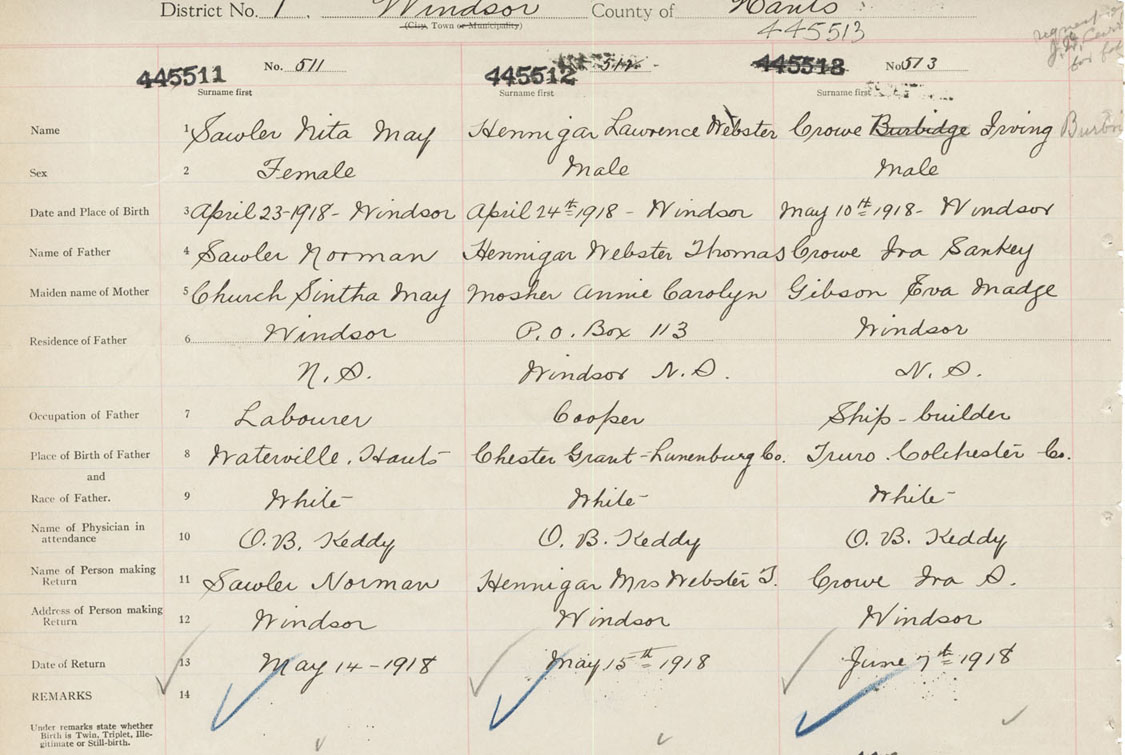 District No. 1. Windsor County of Hants
(City, Town or Municipality)
445513
request
445511 No. 511 445512 512 445513 No 513
Surname first Surname first Surname first
Name 1 Sawler Nita May Hennigar Lawrence Webster Crowe Burbidge Irving
Sex 2 Female Male Male
Date and Place of Birth 3 April 23-1918- Windsor April 24th 1918 - Windsor May 10th 1918- Windsor
Name of Father 4 Sawler Norman Hennigar Webster Thomas Crowe Ira Sankey
Maiden name of Mother 5 Church Sintha May Mosher Annie Carolyn Gibson Eva Madge
Residence of Father 6 Windsor P.O. Box 113 Windsor
N.S. Windsor N.S. N.S.
Occupation of Father 7 Labourer Cooper Ship-builder
Place of Birth of Father 8 Waterville, Hants Chester Grant-Lunenburg Co. Truro Colchester Co.
and
Race of Father. 9 White White White
Name of Physician in attendance 10 O.B. Keddy O.B. Keddy O.B. Keddy
Name of Person making Return 11 Sawler Norman Hennigar Mrs Webster T. Crowe Ira S.
Address of Person making Return 12 Windsor Windsor Windsor
Date of Return 13 May 14-1918 May 15th 1918 June 7th 1918
REMARKS 14
Under remarks state whether
Birth is Twin, Triplet, Ille-
gitimate or Still-birth.